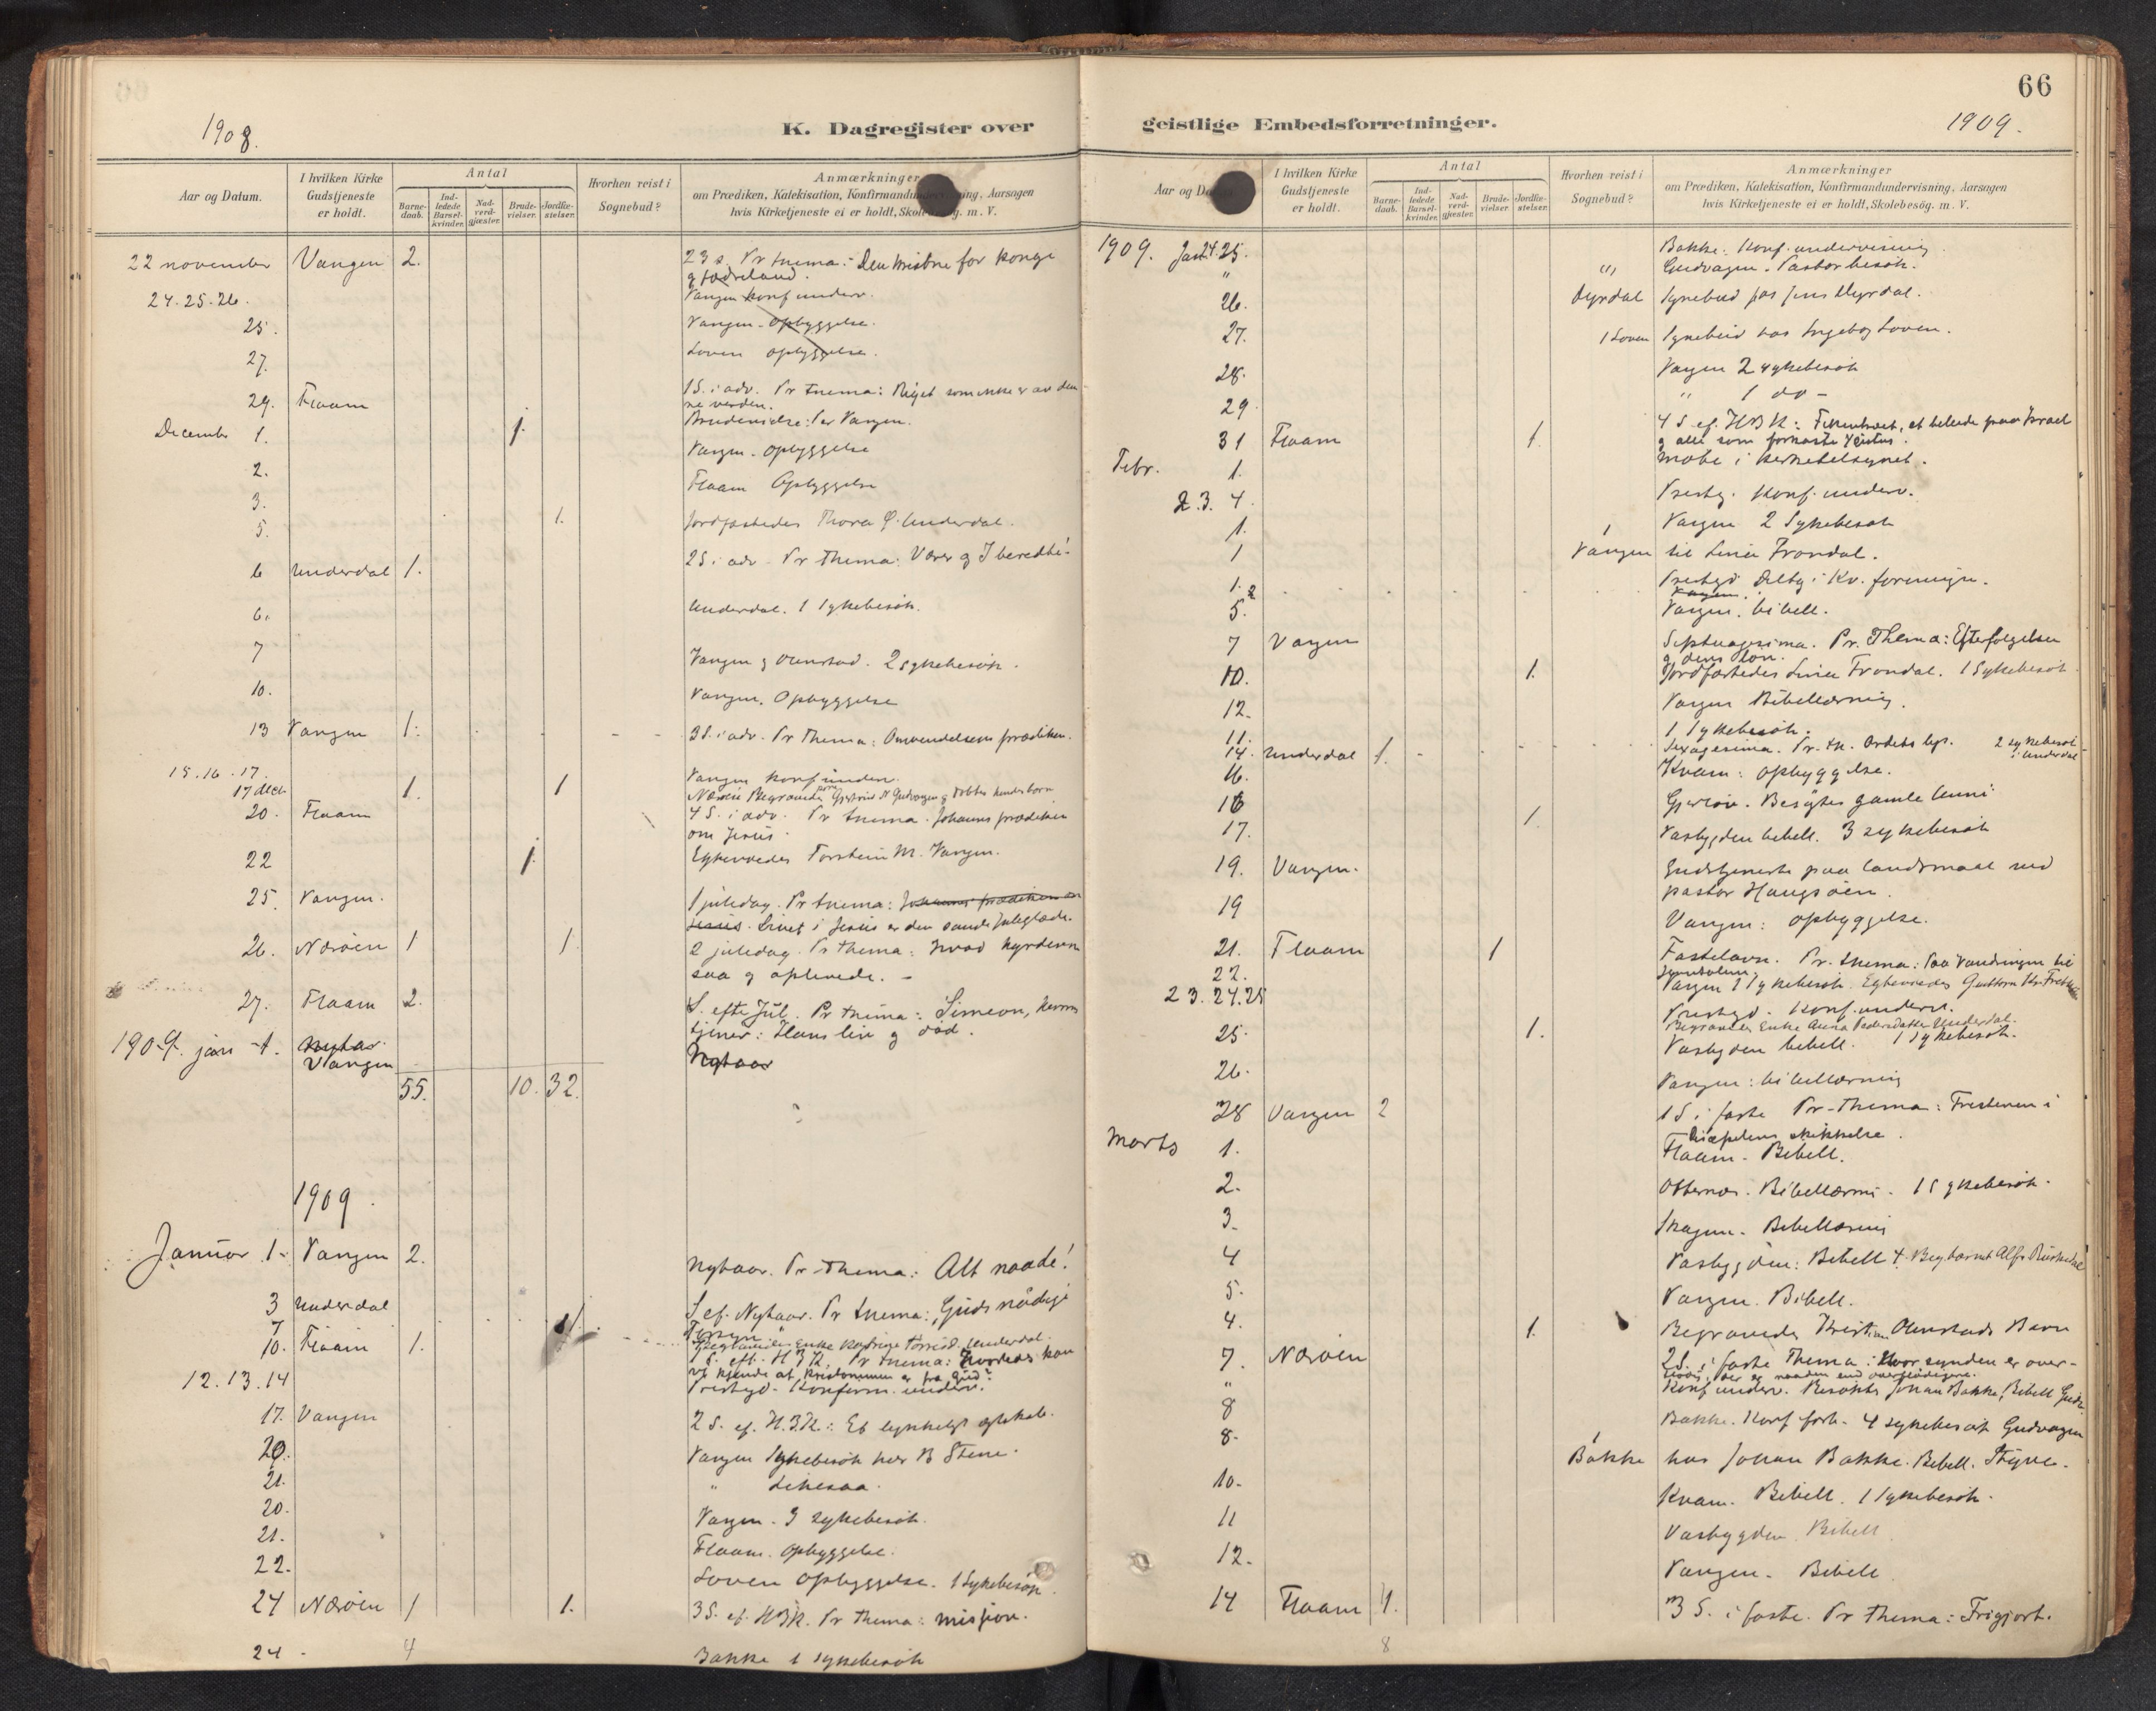 66
1908.
K. Dagregister over
geistlige Embedsforretninger.
1909.
Aar og Datum.
I hvilken Kirke Gudstjeneste er holdt.
Antal
Barne-daab.
Ind-ledede Barsel-kvinder.
Nad-verd-gjæster.
Brude-vielser.
Jordfæ-stelser.
Hvorhen reist i Sognebud?
Anmærkninger
om Prædiken, Katekisation, Konfirmandundervisning, Aarsagen
hvis Kirketjeneste ei er holdt, Skolebesög. m. V.
22 november Vangen 2. 23 s. Pr thema: Den kristne for konge
og fædreland.
24. 25. 26. Vangen konf underv.
25. Vangen - opbyggelse.
27. Loven opbyggelse.
29. Flaam 1 S. i adv. Pr thema: Riget som ikke er av den
ne verden.
December 1. 1. Brudevielse: Per Vangen.
2. Vangen - opbyggelse
3. Flaam Opbyggelse
5. 1. Jordfæstedes Thora Underdal.
6 Underdal 1. 2 S. i adv - Pr thema: Værer og I beredte!
6. Underdal. 1 sykebesøk.
7 Vangen og Ohnstad. 2 sykebesøk.
10. Vangen. Opbyggelse
13 Vangen 1. 3 S. i adv. Pr thema: Omvendelsens prædiken.
15. 16. 17. Vangen konf underv.
17 dec 1. 1 Nærøen Begravedes
20. Flaam 4 S. i adv. Pr thema. Johannes prædiken
om Jesus.
22 1. Egteviedes Torstein M. Vangen.
25. Vangen. 1 juledag. Pr thema: Johannes prædiken om
Jesus. Livet i Jesus er den sande juleglæde.
26. Nærøen 1 1. 2 juledag. Pr thema: Hvad hyrderne
saa og oplevede. -
27. Flaam 2. S. efter Jul. Pr thema: Simeon, herrens
tjener: Hans liv og død.
1909. jan 1. Nytaar
Vangen Nytaar
55. 10. 32.
1909.
Januar 1. Vangen 2. Nytaar. Pr-thema: Alt naade!
3 Underdal S. ef. Nytaar. Pr thema: Guds nådige
Forsyn
7 1. Begravedes Enke Underdal.
10. Flaam 1. 1 S. eft. H 3 K. Pr thema: Hvorledes kan
vi kjende at kristendommen er fra Gud?
12. 13. 14 Prestegd. Konferm. underv.
17. Vangen 2 S. ef. H. 3 K.: Et lykkelig egteskab.
20. Vangen Sykebesøk hos B Stene.
21. " Likesaa.
20. Vangen - 3 sykebesøk.
21. Flaam. opbyggelse.
22. Loven opbyggelse. 1 Sykebesøk.
24 Nærøen 1 1. 3 S. ef. H3K. Pr thema: mission.
24 - 4 Bakke 1 sykebesøk
Aar og Datum.
I hvilken Kirke Gudstjeneste er holdt.
Antal
Barne-daab.
Ind-ledede Barsel-kvinder.
Nad-verd-gjæster.
Brude-vielser.
Jordfæ-stelser.
Hvorhen reist i Sognebud?
Anmærkninger
om Prædiken, Katekisation, Konfirmandundervisning, Aarsagen
hvis Kirketjeneste ei er holdt, Skolebesög. m. V.
1909. Jan 24. 25. Bakke. Konf. undervisning
" Gudvagen. Pastor besøk.
26. Dyrdal Sognebud hos Jens Dyrdal.
27. 1 Loven Sognebud hos Ingeborg Loven.
28. Vangen 2 sykebesøk
29 " 1 do -
31 Flaam 1. 4 S. ef. H 3 K: Fikentræet, et billede paa Israel
og alle som forkaste Kristus.
Febr. 1. møte i kirketilsynet.
2. 3. 4. Presteg. Konf. underv.
1. Vangen 2 Sykebesøk
1 Vangen til Lina Frondal.
1. Prestegd Deltog i Kv. foreningen.
5. Vangen. bibell.
7 Vangen Septuagesima. Pr. Thema: Efterfølgelsen
og dens løn.
10. 1. Jordfæstedes Lina Frondal. 1 Sykebesøk
12. Vangen Bibellæsning.
11. 1 Sykebesøk.
14. Underdal 1. Sexagesima. Pr. th. Ordets 2 sykebesøk i Underdal
16. Kvam: opbyggelse.
16 Besøgtes gamle Anni
17. 1. Vasbygden bibell. 3 sykebesøk
19. Vangen. Gudstjeneste paa landsmaal ved
pastor Haugsøen.
19 Vangen: opbyggelse.
21. Flaam 1 Fastelavn. Pr. thema: Paa vandringen til
Jerusalem
22. Vangen 1 Sykebesøk. Egteviedes Guttorm
23. 24. 25 Prestegd. Konf. underv.
Begravedes Enke Anna Pedersdatter Underdal.
25. 1. Vasbygden bibell. 1 Sykebesøk.
26. Vangen: bibellæsning
28 Vangen 2 1 S. i faste Pr-thema: Fristeren i
disipelens skikkelse.
Marts 1. Flaam. Bibell.
2. Otternes. Bibellæsn. 1 Sykebesøk.
3. Skagen. Bibellæsning
4 Vasbygden: Bibell
5. Vangen. Bibell.
4. 1. Begravedes Kristian Ohnstads Barn
7. Nærøen 2 S. i faste Thema: Hvor synden er over-
flødig, der er naaden end overflødigere.
" Konf. underv. Besøkte Johan Bakke, Bibell
8 Bakke. Konf forb. 4 sykebesøk Gudvagen
8. Bakke hos Johan Bakke. Bibell. Styve.
10. Kvam. Bibell. 1 sykebesøk.
11 Vasbygden. Bibell
12. Vangen. Bibell
14 Flaam 1. 3 S. i faste. Pr thema: Frigjort.
8